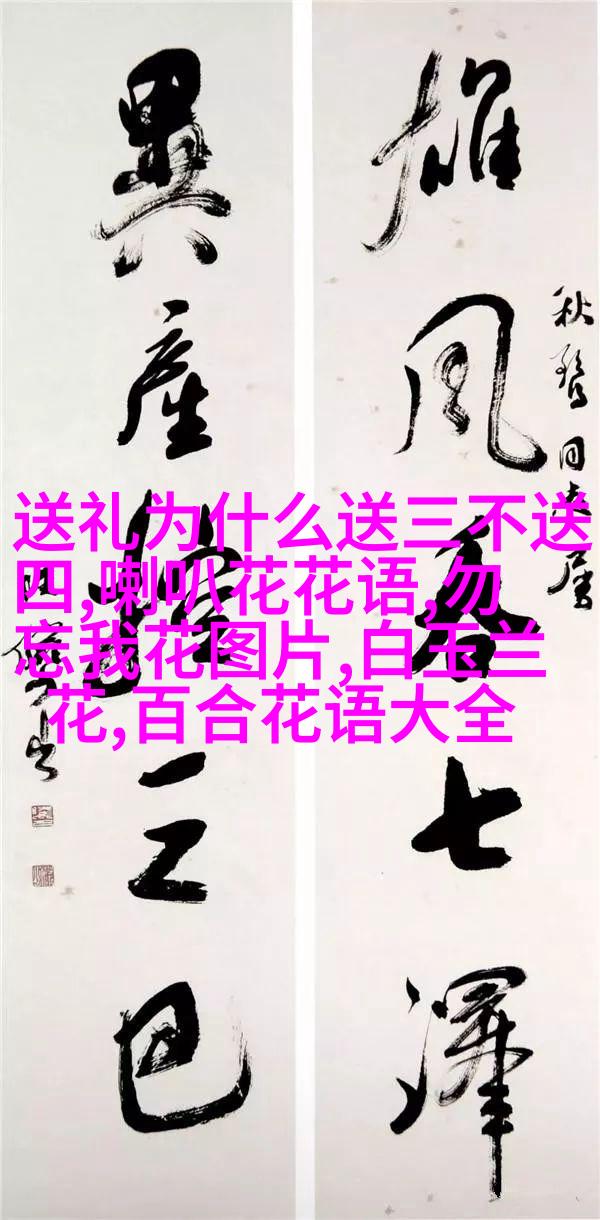 雄風吞七澤
異產控三巴
送礼为什么送三不送
四,喇叭花花语,勿
忘我花图片,白玉兰
花,百合花语大全